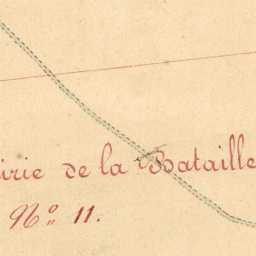 irie de la Bataille
Nº 11.